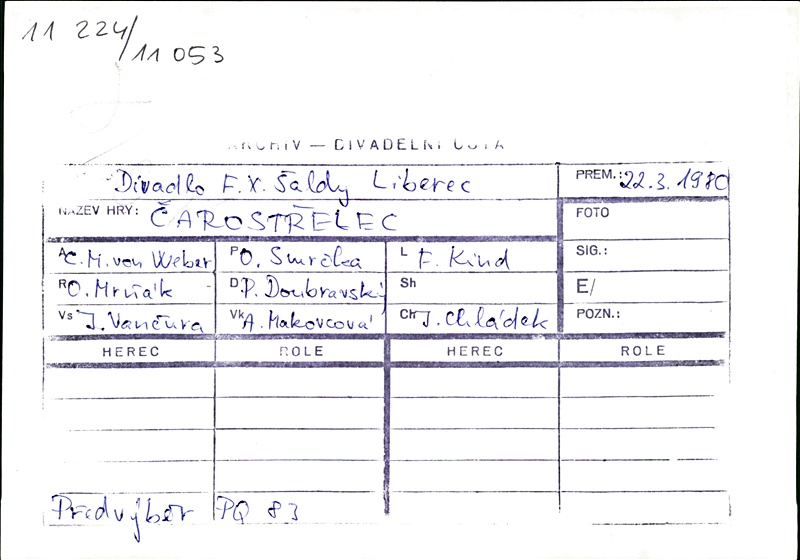 11 224/
11 053
ARCHIV — DIVADELNÍ ÚSTAV
Divadlo F. X. Šaldy Liberec PREM.: 22.3.1980
NÁZEV HRY: ČAROSTŘELEC FOTO
A C. M. von Weber P O. Smrčka L F. Kind SIG.:
R O. Mrňák D P. Doubravský Sh E/
Vs J. Vančura Vk A. Makovcová Ch J. Chládek POZN.:
HEREC ROLE HEREC ROLE
Předvýběr PQ 83